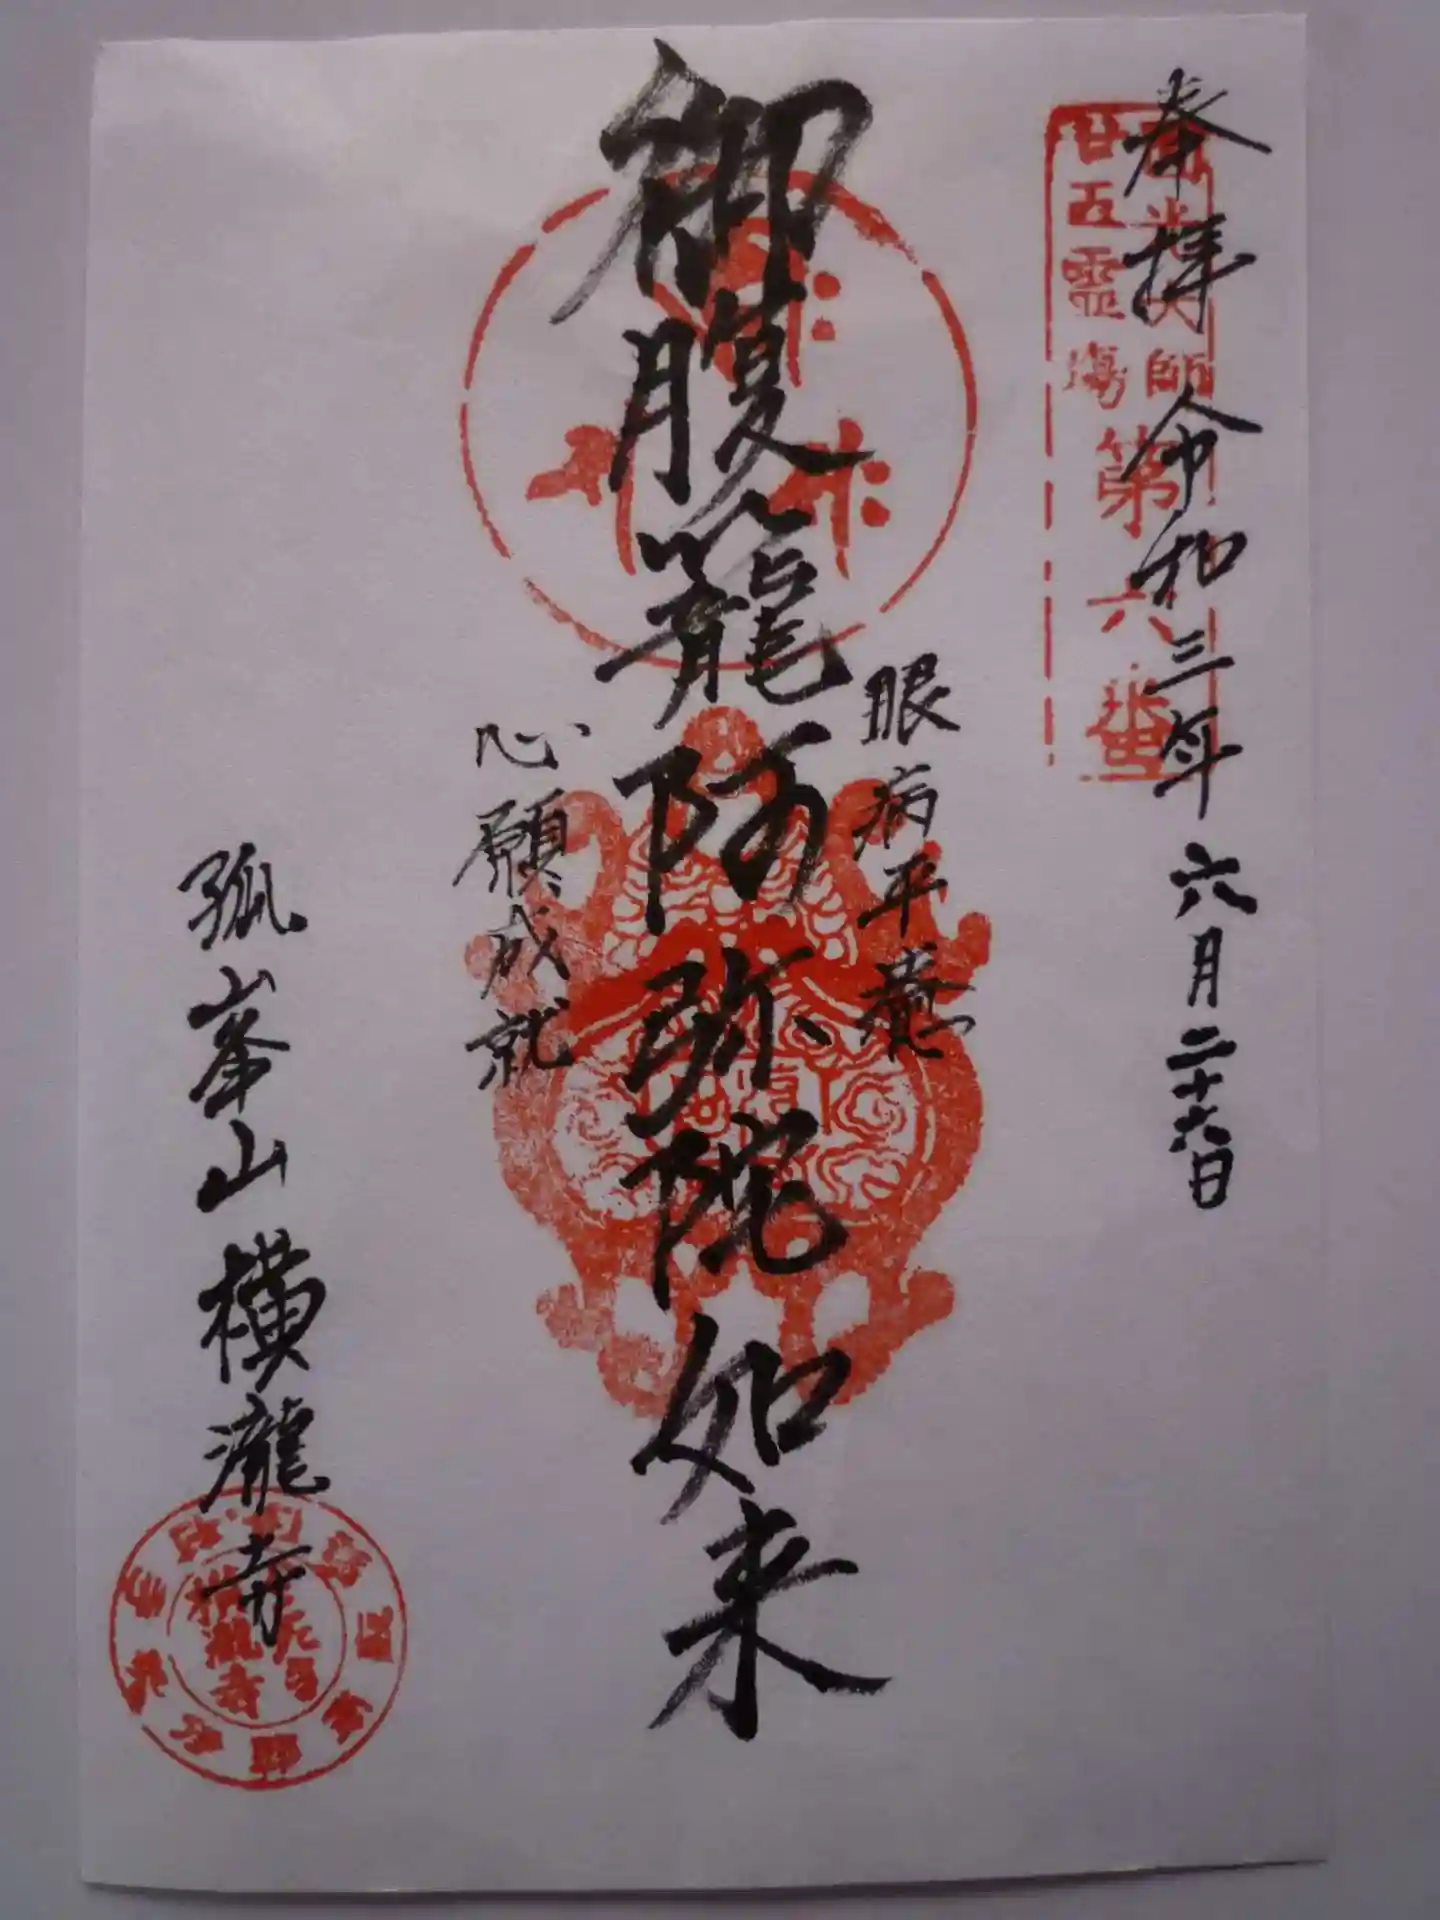 奉拝 令和三年六月二十六日
師
廿五霊場
第六番
眼病平癒
御腹籠阿弥陀如来
心願成就
孤峯山横瀧寺
横瀧寺